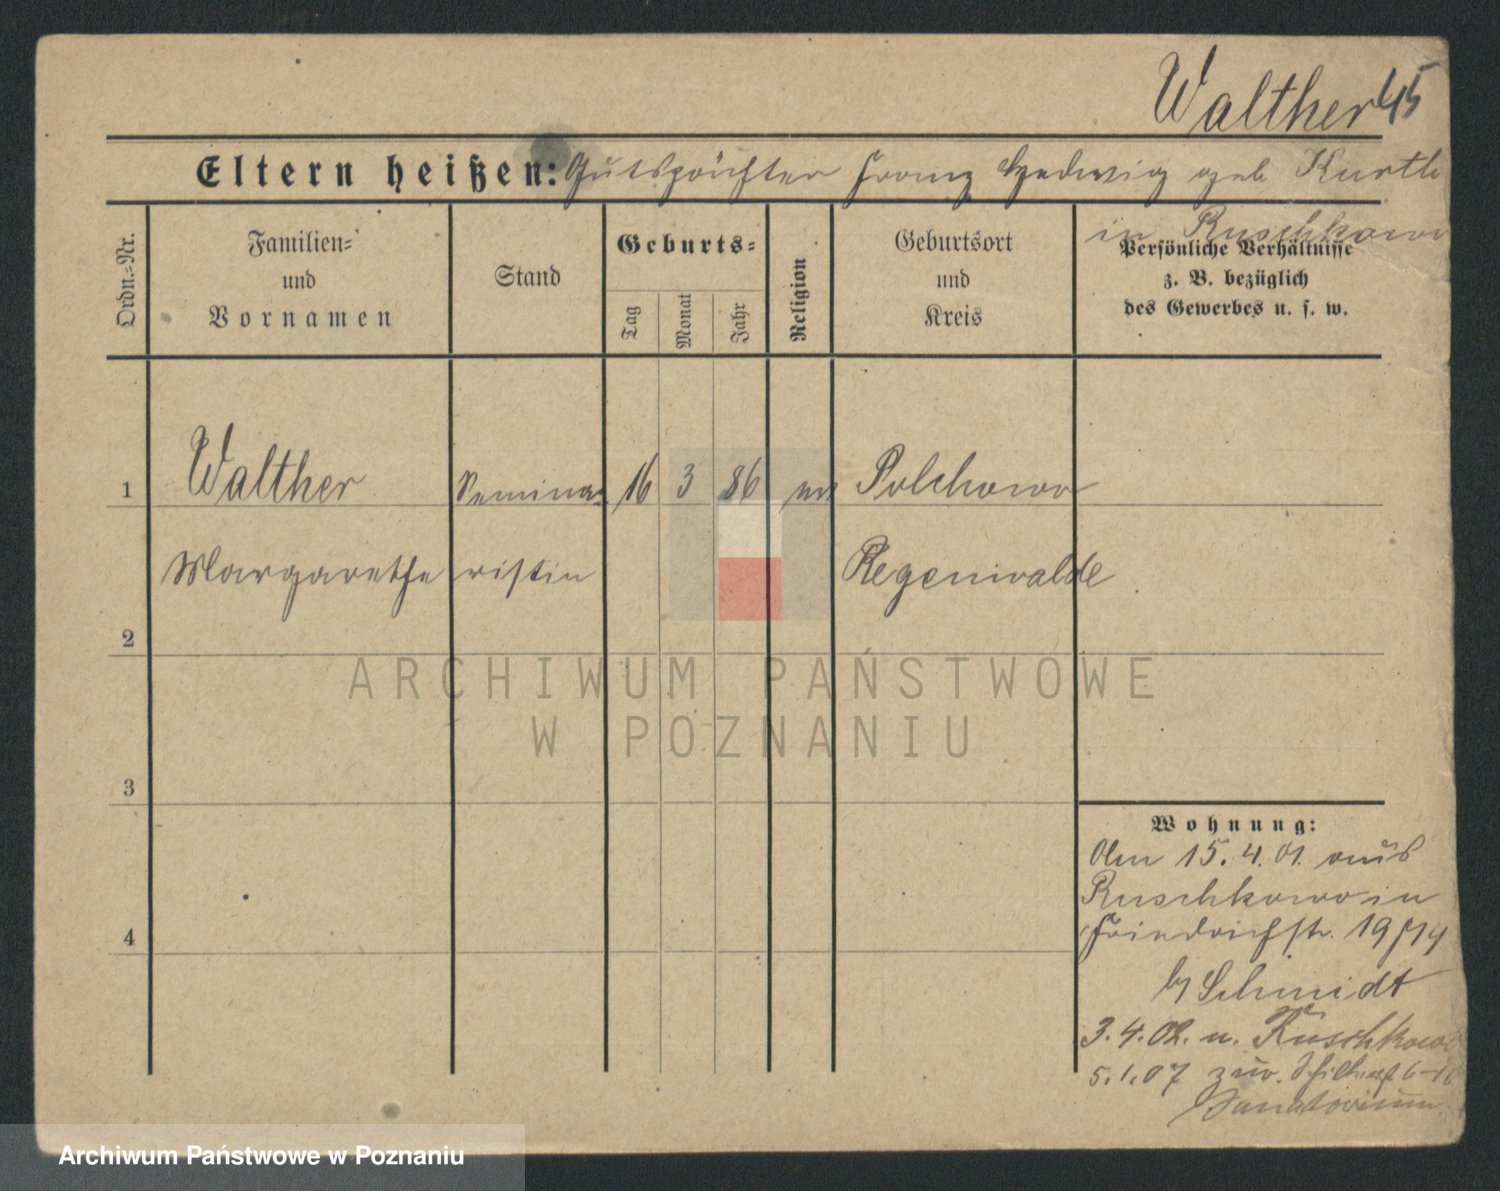 Walther 45
Eltern heißen: Gutspächter Franz Hedwig geb. Kurth
in Ruschkowo
Ordn.-Nr.
Familien- und Vornamen
Stand
Geburts-
Tag
Monat
Jahr
Religion
Geburtsort und Kreis
Persönliche Verhältnisse
z. B. bezüglich
des Gewerbes u. s. w.
1 Walther Semina- 16 3 86 ev Polchowo
Margarethe ristin Regenwalde
2
ARCHIWUM PAŃSTWOWE
W POZNANIU
3
Wohnung:
Am 15.4.01. aus
Ruschkowo in
4
Friedrichstr. 19
b/ Schmidt
3.4.02. n. Ruschkowo
5.1.07 zur.
Sanatorium
Archiwum Państwowe w Poznaniu